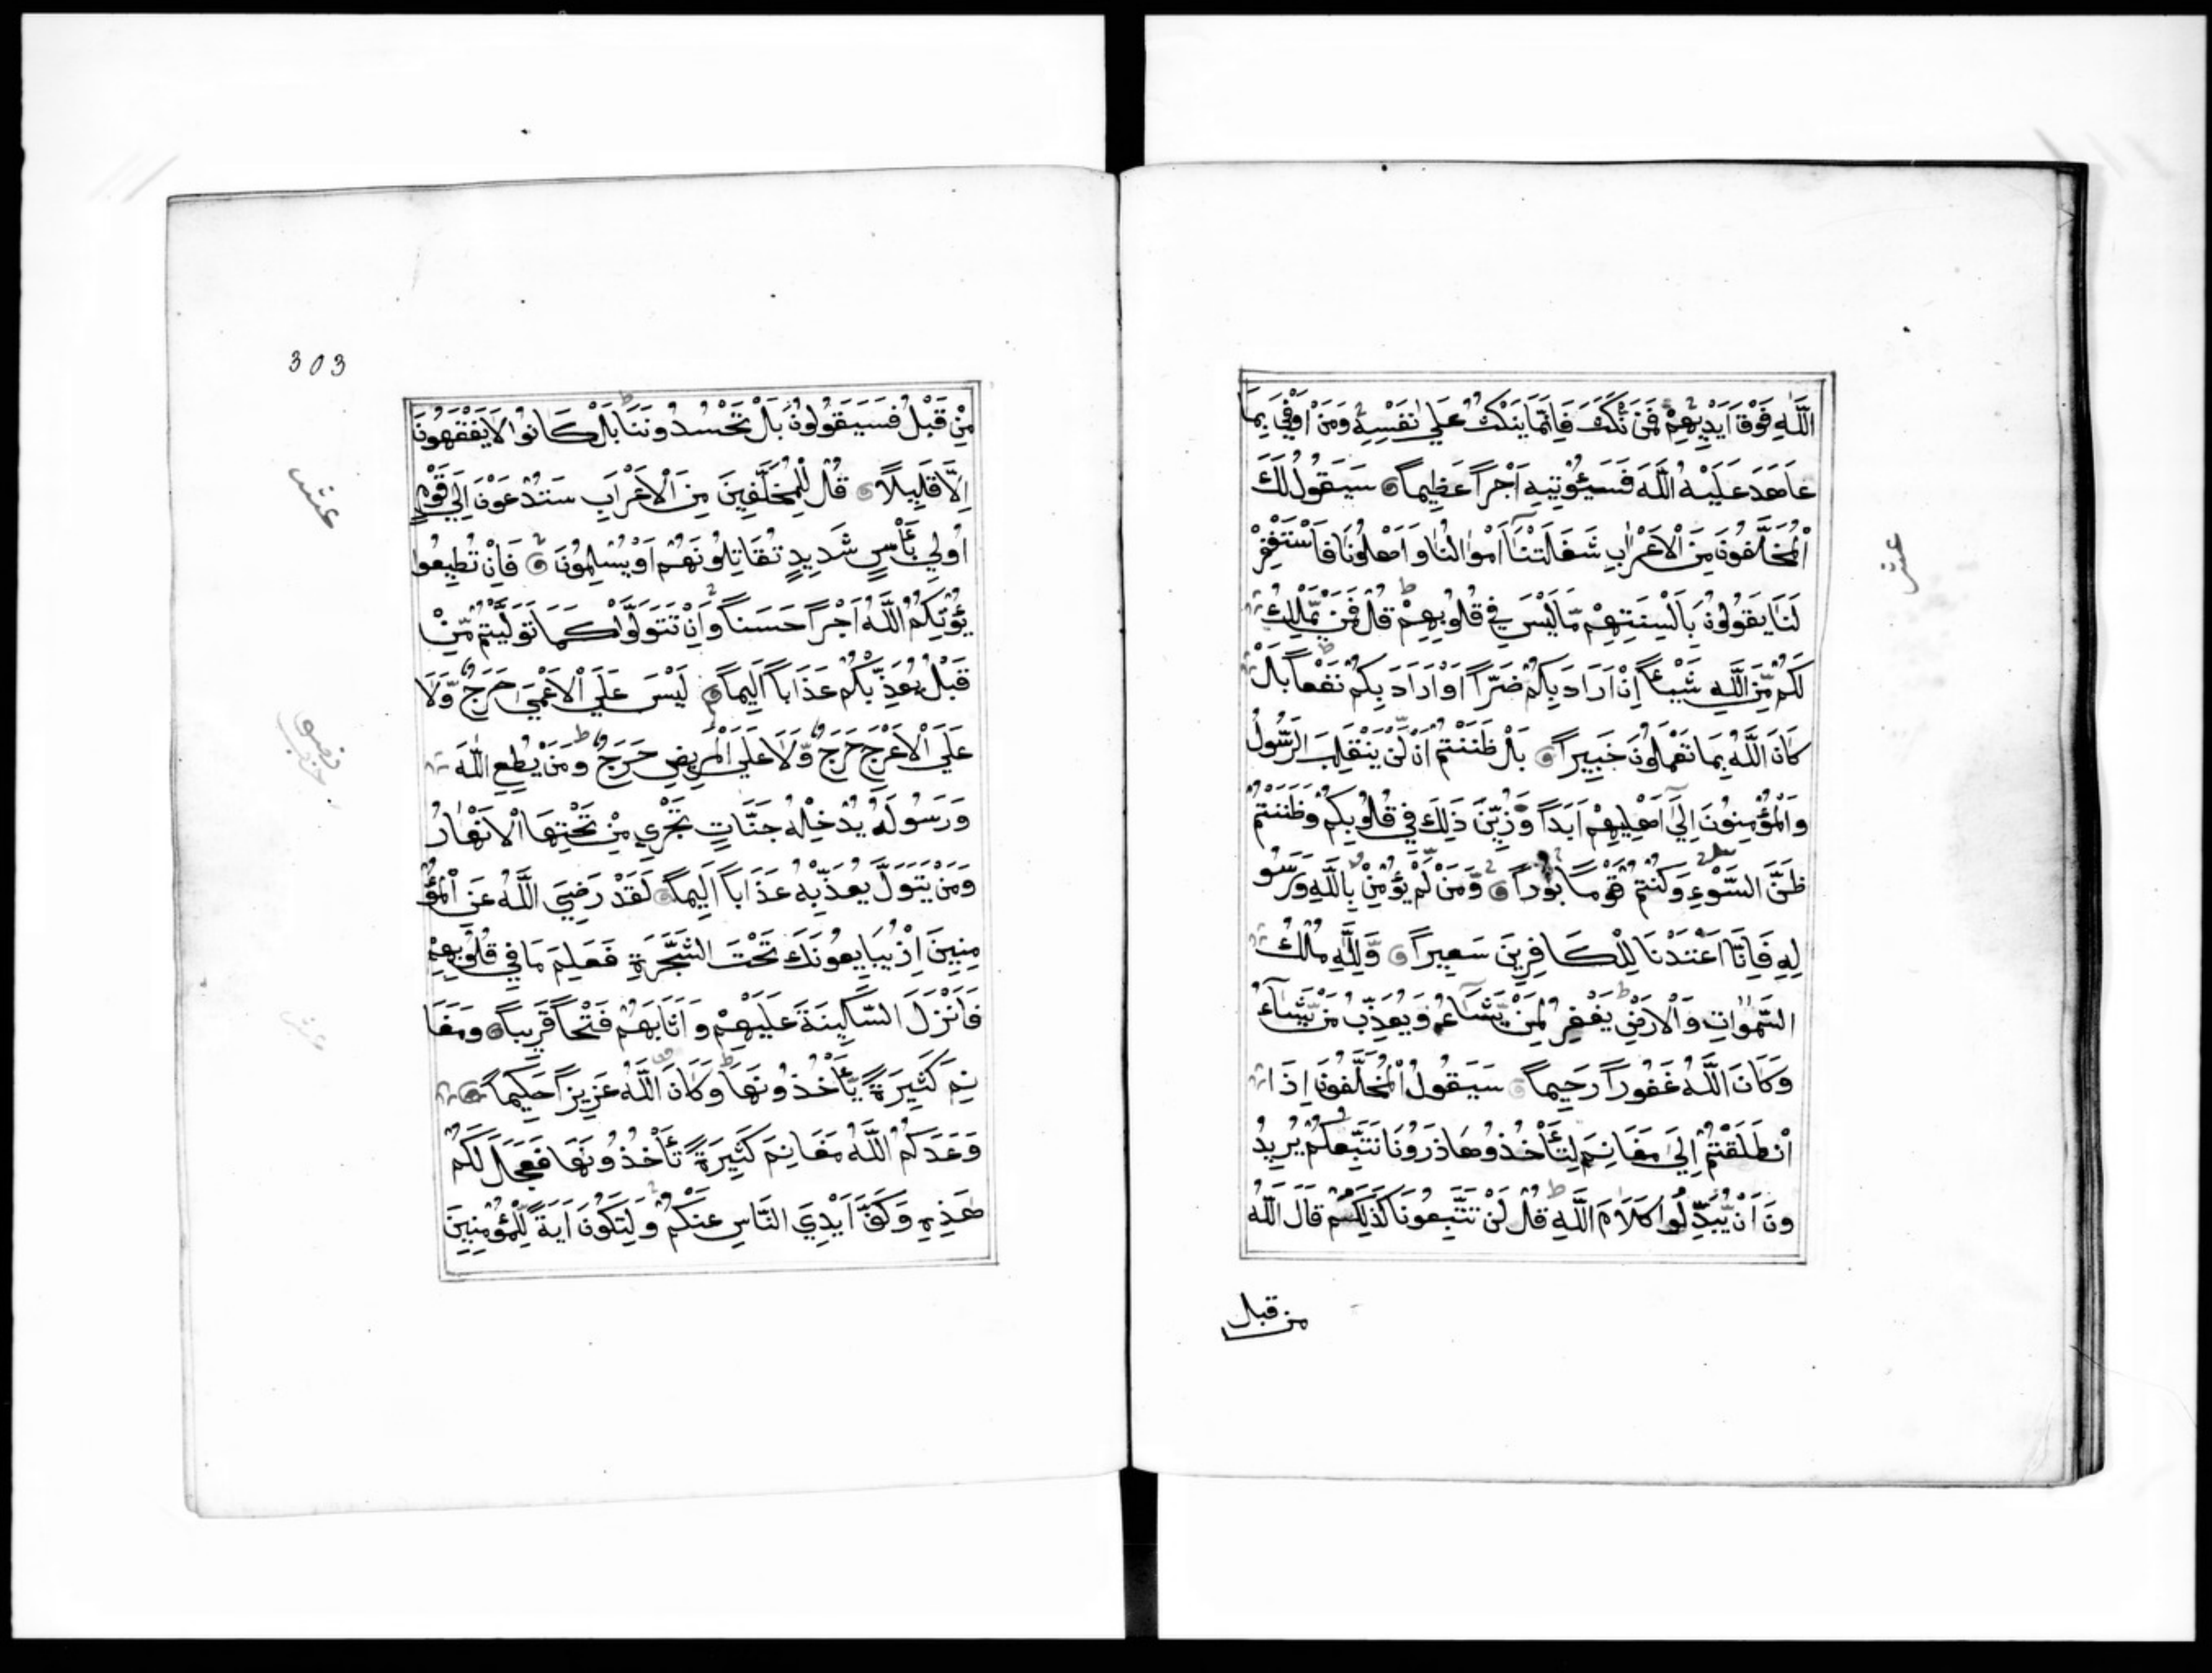 اللَّهِ فَوْقَ اَيْدِيهِمْ فَمَنْ نَكَثَ فَاِنَّمَا يَنْكُثُ عَلَى نَفْسِهِ وَمَنْ اَوْفَى بِمَا
عَاهَدَ عَلَيْهُ اللَّهَ فَسَيُؤْتِيهِ اَجْرًا عَظِيمًا سَيَقُولُ لَكَ
الْمُخَلَّفُونَ مِنَ الْاَعْرَابِ شَغَلَتْنَا اَمْوَالُنَا وَاَهْلُونَا فَاسْتَغْفِرْ
لَنَا يَقُولُونَ بِاَلْسِنَتِهِمْ مَّا لَيْسَ فِي قُلُوبِهِمْ قُلْ فَمَنْ يَّمْلِكُ
لَكُمْ مِّنَ اللَّهِ شَيْئًا اِنْ اَرَادَ بِكُمْ ضَرًّا اَوْ اَرَادَ بِكُمْ نَفْعًا بَلْ
كَانَ اللَّهُ بِمَا تَعْمَلُونَ خَبِيرًا بَلْ ظَنَنْتُمْ اَنْ لَّنْ يَنْقَلِبَ الرَّسُولُ
وَالْمُؤْمِنُونَ اِلَى اَهْلِيهِمْ اَبَدًا وَّزُيِّنَ ذَلِكَ فِي قُلُوبِكُمْ وَظَنَنْتُمْ
ظَنَّ السَّوْءِ وَكُنْتُمْ قَوْمًا بُورًا وَمَنْ لَّمْ يُؤْمِنْ بِاللَّهِ وَرَسُو
لِهِ فَاِنَّا اَعْتَدْنَا لِلْكَافِرِينَ سَعِيرًا وَلِلَّهِ مُلْكُ
السَّمٰوَاتِ وَالْاَرْضِ يَغْفِرُ لِمَنْ يَّشَاءُ وَيُعَذِّبُ مَنْ يَّشَاءُ
وَكَانَ اللَّهُ غَفُورًا رَحِيمًا سَيَقُولُ الْمُخَلَّفُونَ اِذَا
انْطَلَقْتُمْ اِلَى مَغَانِمَ لِتَأْخُذُوهَا ذَرُونَا نَتَّبِعْكُمْ يُرِيدُ
ونَ اَنْ يُّبَدِّلُوا كَلَامَ اللَّهِ قُلْ لَنْ تَتَّبِعُونَا كَذَلِكُمْ قَالَ اللَّهُ
من قبل
303
مِنْ قَبْلُ فَسَيَقُولُونَ بَلْ تَحْسُدُونَنَا بَلْ كَانُوا لَا يَفْقَهُونَ
اِلَّا قَلِيلًا قُلْ لِلْمُخَلَّفِينَ مِنَ الْاَعْرَابِ سَتُدْعَوْنَ اِلَى قَوْمٍ
اُولِي بَأْسٍ شَدِيدٍ تُقَاتِلُونَهُمْ اَوْ يُسْلِمُونَ فَاِنْ تُطِيعُوا
يُؤْتِكُمُ اللَّهُ اَجْرًا حَسَنًا وَاِنْ تَتَوَلَّوْا كَمَا تَوَلَّيْتُمْ مِّنْ
قَبْلُ يُعَذِّبْكُمْ عَذَابًا اَلِيمًا لَيْسَ عَلَى الْاَعْمَى حَرَجٌ وَّلَا
عَلَى الْاَعْرَجِ حَرَجٌ وَّلَا عَلَى الْمَرِيضِ حَرَجٌ وَمَنْ يُطِعِ اللَّهَ
وَرَسُولَهُ يُدْخِلْهُ جَنَّاتٍ تَجْرِي مِنْ تَحْتِهَا الْاَنْهَارُ
وَمَنْ يَتَوَلَّ يُعَذِّبْهُ عَذَابًا اَلِيمًا لَقَدْ رَضِيَ اللَّهُ عَنِ الْمُؤْ
مِنِينَ اِذْ يُبَايِعُونَكَ تَحْتَ الشَّجَرَةِ فَعَلِمَ مَا فِي قُلُوبِهِمْ
فَاَنْزَلَ السَّكِينَةَ عَلَيْهِمْ وَاَثَابَهُمْ فَتْحًا قَرِيبًا وَمَغَا
نِمَ كَثِيرَةً يَّأْخُذُونَهَا وَكَانَ اللَّهُ عَزِيزًا حَكِيمًا
وَعَدَكُمُ اللَّهُ مَغَانِمَ كَثِيرَةً تَأْخُذُونَهَا فَعَجَّلَ لَكُمْ
هَذِهِ وَكَفَّ اَيْدِيَ النَّاسِ عَنْكُمْ وَلِتَكُونَ اَيَةً لِّلْمُؤْمِنِينَ
عشر
عشر
حزب
عشر